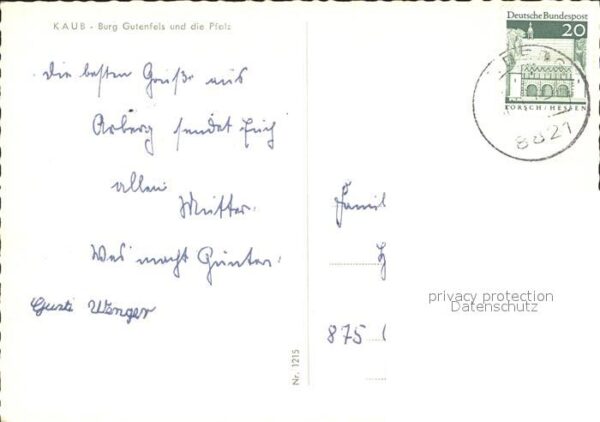 KAUB - Burg Gutenfels und die Pfalz
Deutsche Bundespost
20
LORSCH/HESSEN
8821
die besten Grüße aus
Arberg sendet Euch
allen
Mutter.
Was macht Günter.
Gusti Wenger
Famil
875
Nr. 1215
privacy protection
Datenschutz